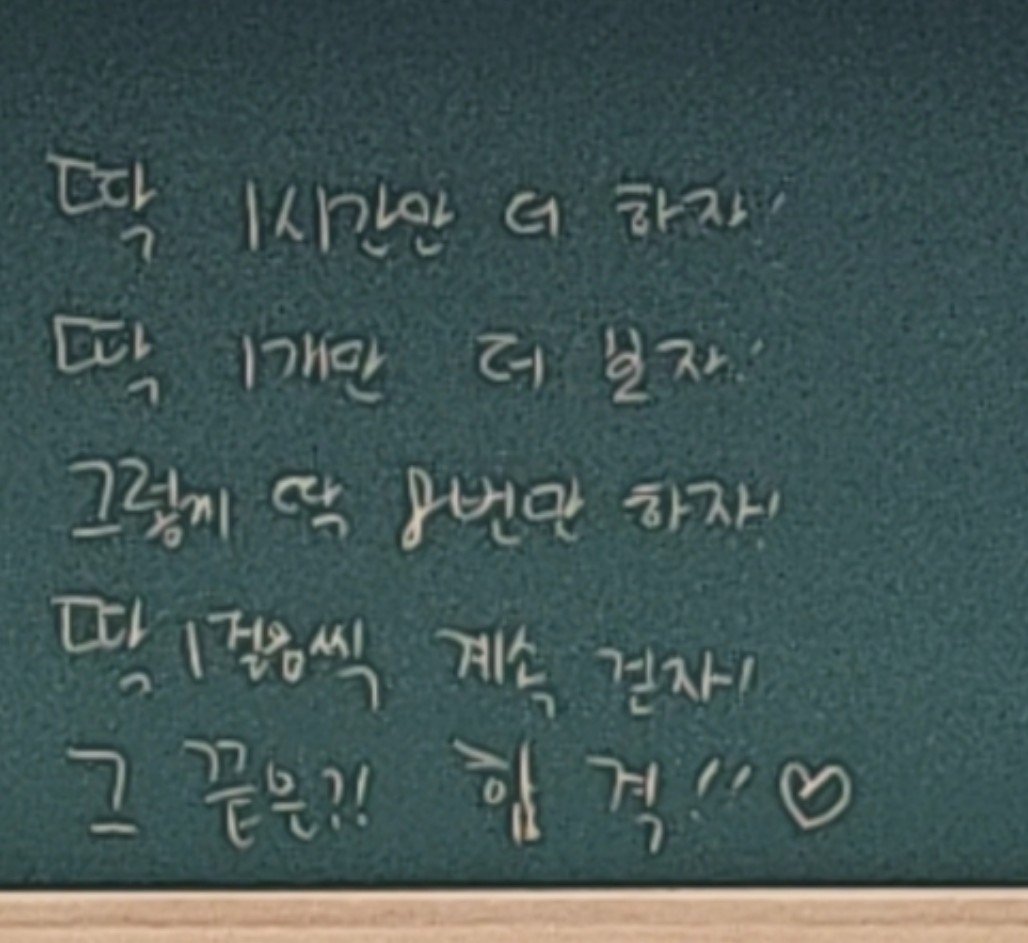 딱 1시간만 더 하자!
딱 1개만 더 보자!
그렇게 딱 8번만 하자!
딱 1걸음씩 계속 걷자!
그 끝은?! 합격!! ♡